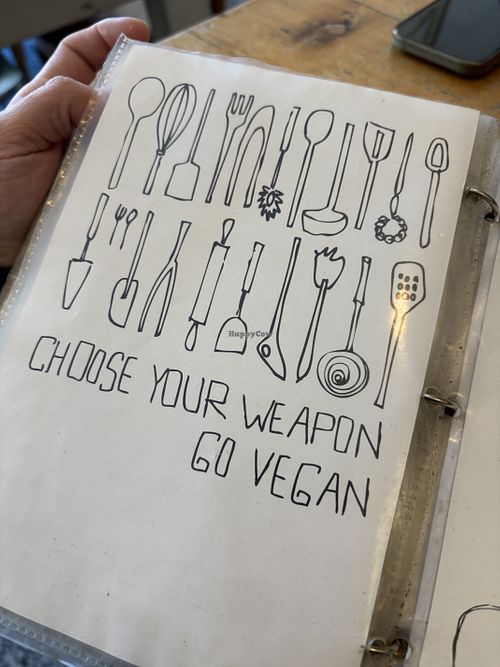 HappyCow
CHOOSE YOUR WEAPON
GO VEGAN